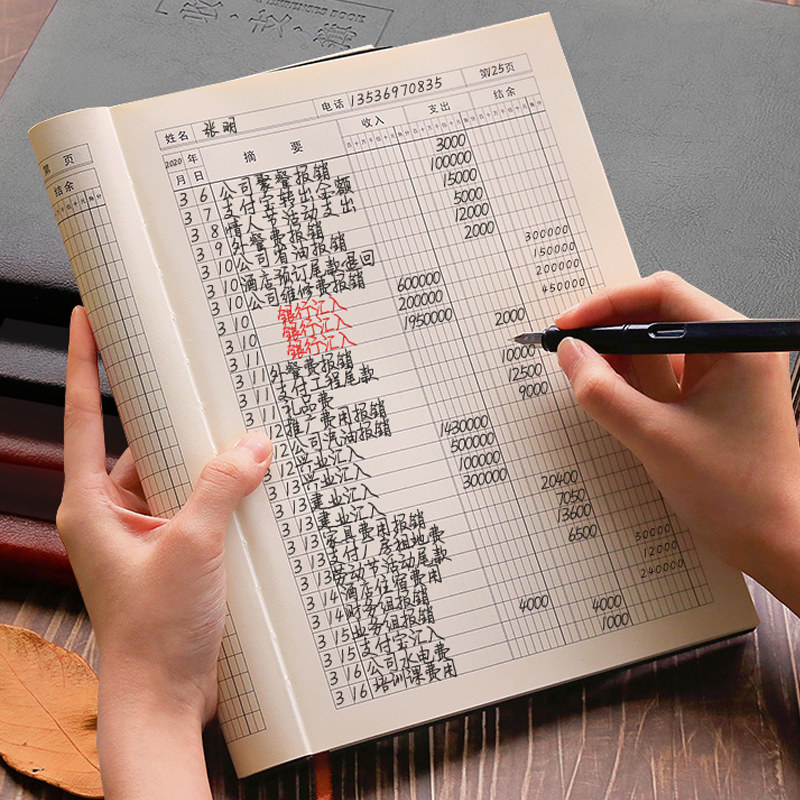 收·支·账
第 页
结余
姓名 张明 电话 13536970835 第25页
2020年 摘要 收入 支出 结余
月 日
3 6 公司聚餐报销 3000
3 7 支付宝转出金额 100000
3 8 情人节活动支出 15000
3 9 外餐费报销 5000
3 10 公司省油报销 12000
3 10 酒店预订尾款退回 2000
3 10 公司维修费报销 300000
3 10 银行汇入 600000 150000
3 10 银行汇入 200000 200000
3 11 银行汇入 1950000 450000
3 11 外餐费报销 2000
3 11 支付工程尾款
3 11 礼品费 10000
3 12 推广费用报销 12500
3 12 公司汽油报销 9000
3 12 兴业汇入 1430000
3 13 兴业汇入 500000
3 13 建业汇入 100000
3 13 建业汇入 300000
3 13 家具费用报销 20400
3 13 支付厂房租地费 7050
3 13 劳动节活动尾款 13600
3 14 酒店住宿费用 6500
3 14 财务组报销 30000
3 15 业务组报销 12000
3 15 支付宝汇入 4000 240000
3 16 公司水电费 4000
3 16 培训课费用 1000